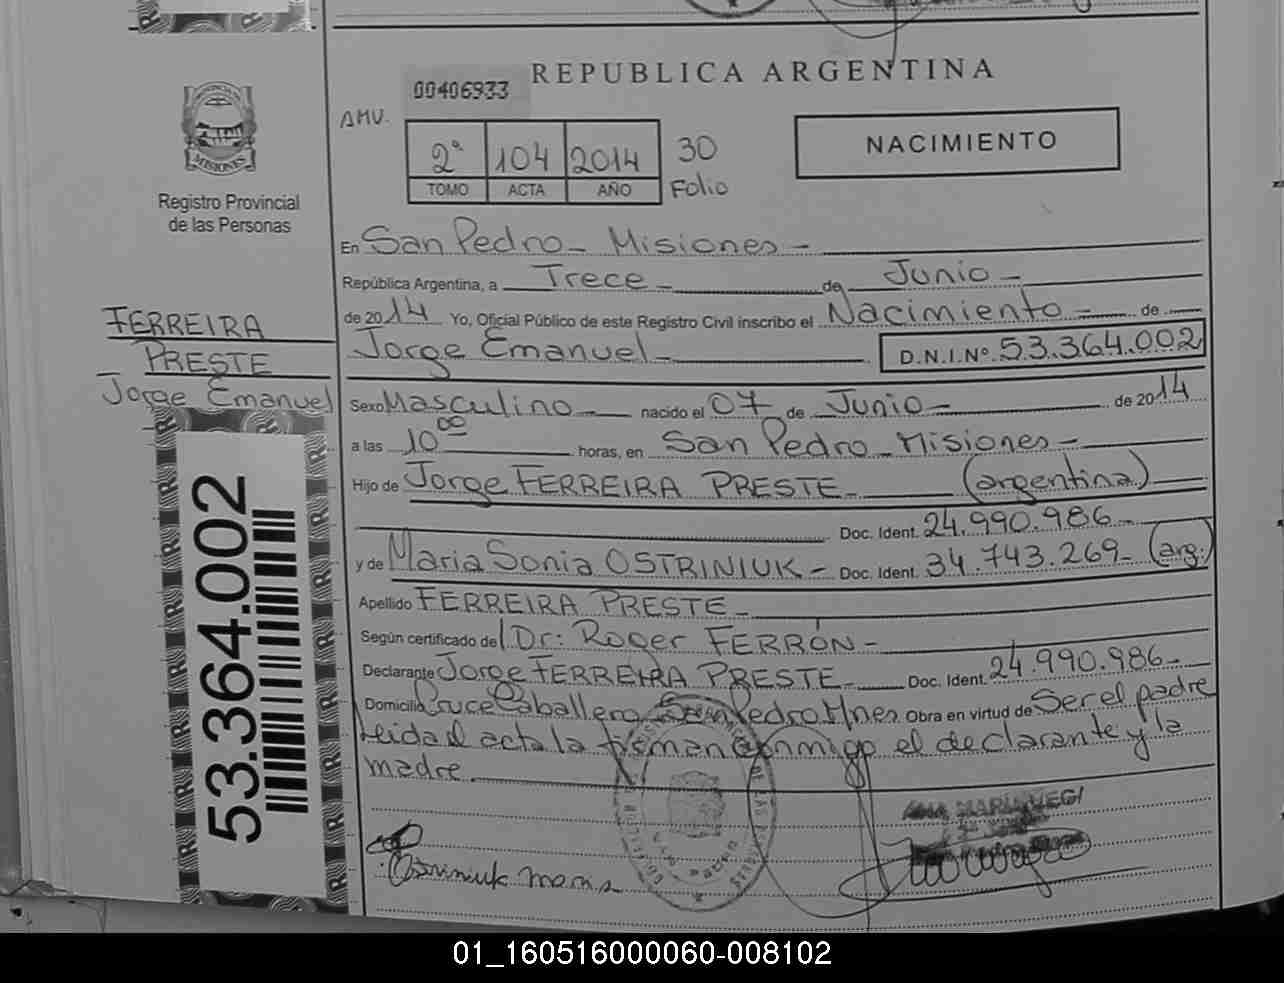 REPUBLICA ARGENTINA
00406933
AMU.
2ª 104 2014 30
TOMO ACTA AÑO Folio
NACIMIENTO
MISIONES
Registro Provincial
de las Personas
FERREIRA
PRESTE
Jorge Emanuel
53.364.002
En San Pedro - Misiones -
República Argentina, a Trece - de Junio -
de 2014 Yo, Oficial Público de este Registro Civil inscribo el Nacimiento - de
Jorge Emanuel - D.N.I.Nº 53.364.002
Sexo Masculino - nacido el 07 de Junio - de 2014
a las 10 00 horas, en San Pedro - Misiones -
Hijo de Jorge FERREIRA PRESTE - (argentina)
Doc. Ident. 24.990.986 -
y de Maria Sonia OSTRINIUK - Doc. Ident. 34.743.269 - (arg.)
Apellido FERREIRA PRESTE -
Según certificado del Dr: Roger FERRÓN -
Declarante Jorge FERREIRA PRESTE - Doc. Ident. 24.990.986 -
Domicilio Cruce Caballero San Pedro Mnes Obra en virtud de Ser el padre
Leida el acta la firman conmigo el declarante y la
madre
ANA MARIA
Ostriniuk Maria
01_160516000060-008102